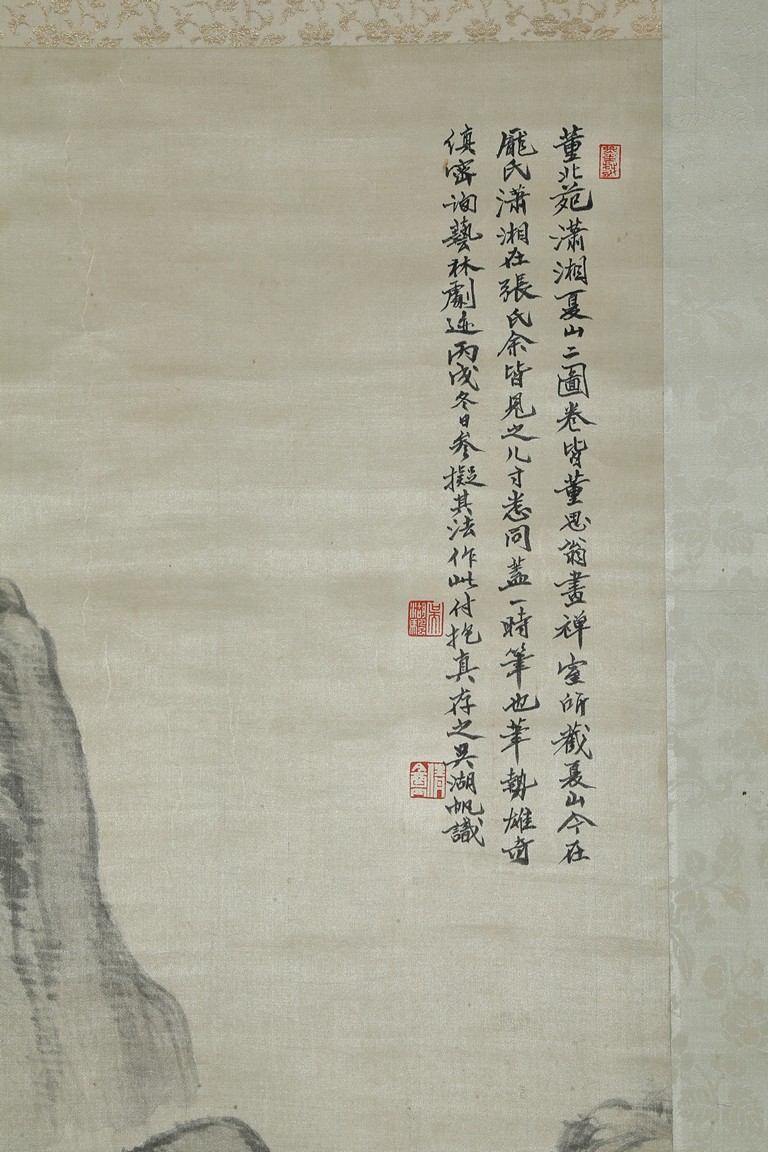 董北苑瀟湘夏山二圖卷皆董思翁畫禅室所藏夏山今在
龐氏瀟湘在張氏余皆見之尺寸悉同蓋一時筆也筆勢雄奇
縝密洵藝林劇迹丙戌冬日參擬其法作此付抱真存之吳湖帆識